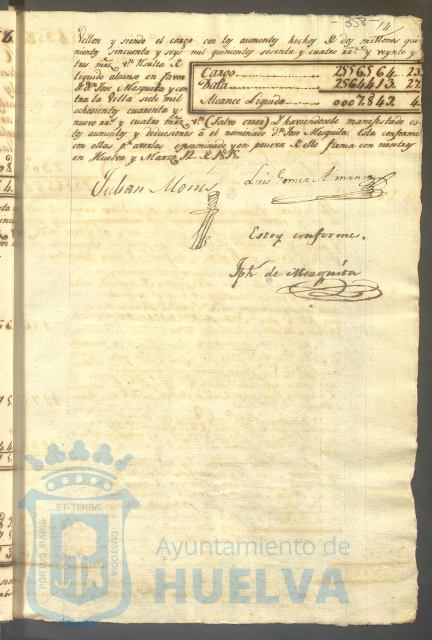 -858-
14
Vellon y siendo el cargo con los aumentos hechos de dos millones qui-
nientos cincuenta y seys mil quinientos sesenta y quatro rr.s y veynte y
tres mrs. vn. Resulta el
liquido alcanse en favor
de Dn. Jose Mesquita y con-
tra la Villa siete mil
ochocientos cuarenta y
Cargo 2556564.23.
Data 2564413.27
Alcance Liquido 0007849.4
nueve rr.s y cuatro mrs. vn. (Salvo error) Y haviendosele manifestado es-
tos aumentos y deducciones á el nominado Dn. Jose Mesquita: Esta conforme
con ellas pr. averlas examinado y en prueva de ello firma con nosotros
en Huelva y Marzo
Julian Monis
Luis Gomez Amanza
Estoy conforme.
Jph. de Mezquita
ET·TERRÆ
PORTUS MARIS
CUSTODIA
Ayuntamiento de
HUELVA